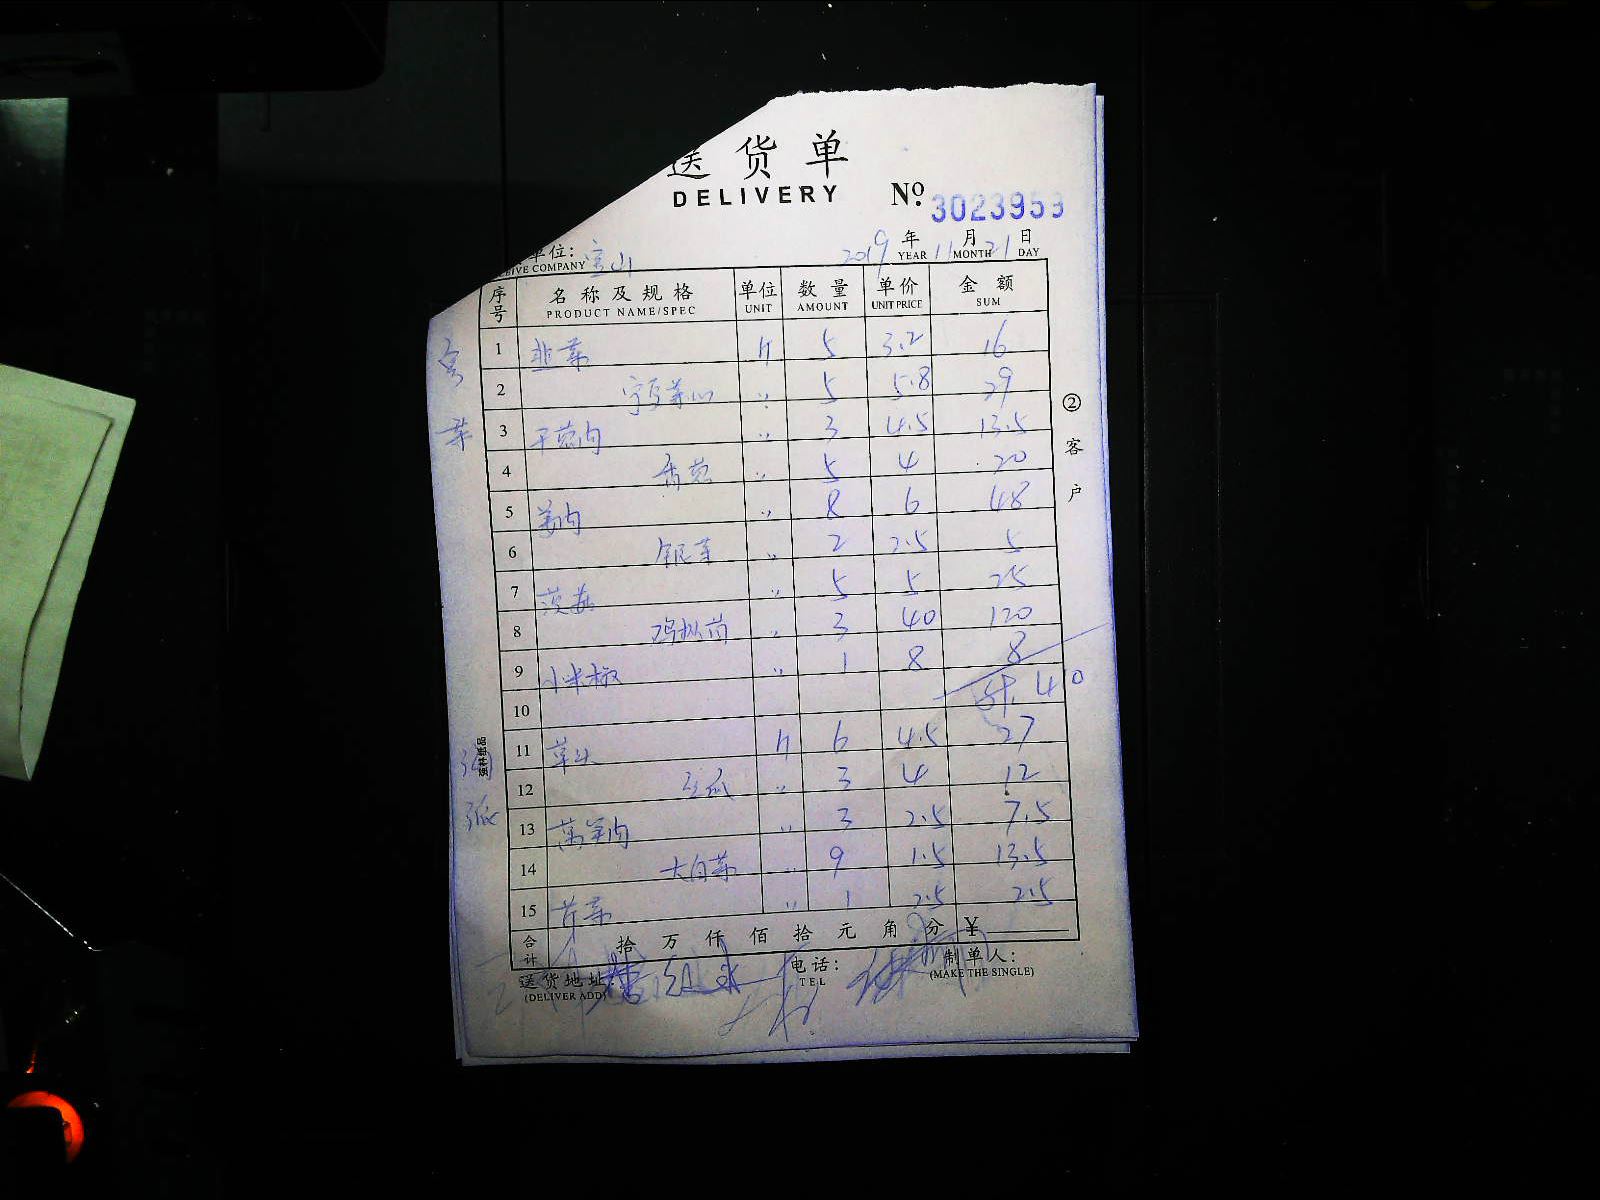 送货单
DELIVERY
No. 3023959
单位: 宝山 2019 年 11 月 21 日
COMPANY YEAR MONTH DAY
序号 名称及规格 单位 数量 单价 金额
PRODUCT NAME/SPEC UNIT AMOUNT UNIT PRICE SUM
1 韭菜 斤 5 3.2 16
2 宁夏菜心 〃 5 5.8 29
3 干葱肉 〃 3 4.5 13.5
4 香葱 〃 5 4 20
5 姜肉 〃 8 6 48
6 银芽 〃 2 2.5 5
7 茨菇 〃 5 5 25
8 鸡枞菌 〃 3 40 120
9 小米椒 〃 1 8 8
10 40
11 草头 斤 6 4.5 27
12 瓜 〃 3 4 12
13 莴笋肉 〃 3 2.5 7.5
14 大白菜 〃 9 1.5 13.5
15 芹菜 〃 1 2.5 2.5
合计 拾 万 仟 佰 拾 元 角 分 ¥
送货地址: 电话: 制单人:
(DELIVER ADD) TEL (MAKE THE SINGLE)
②客户